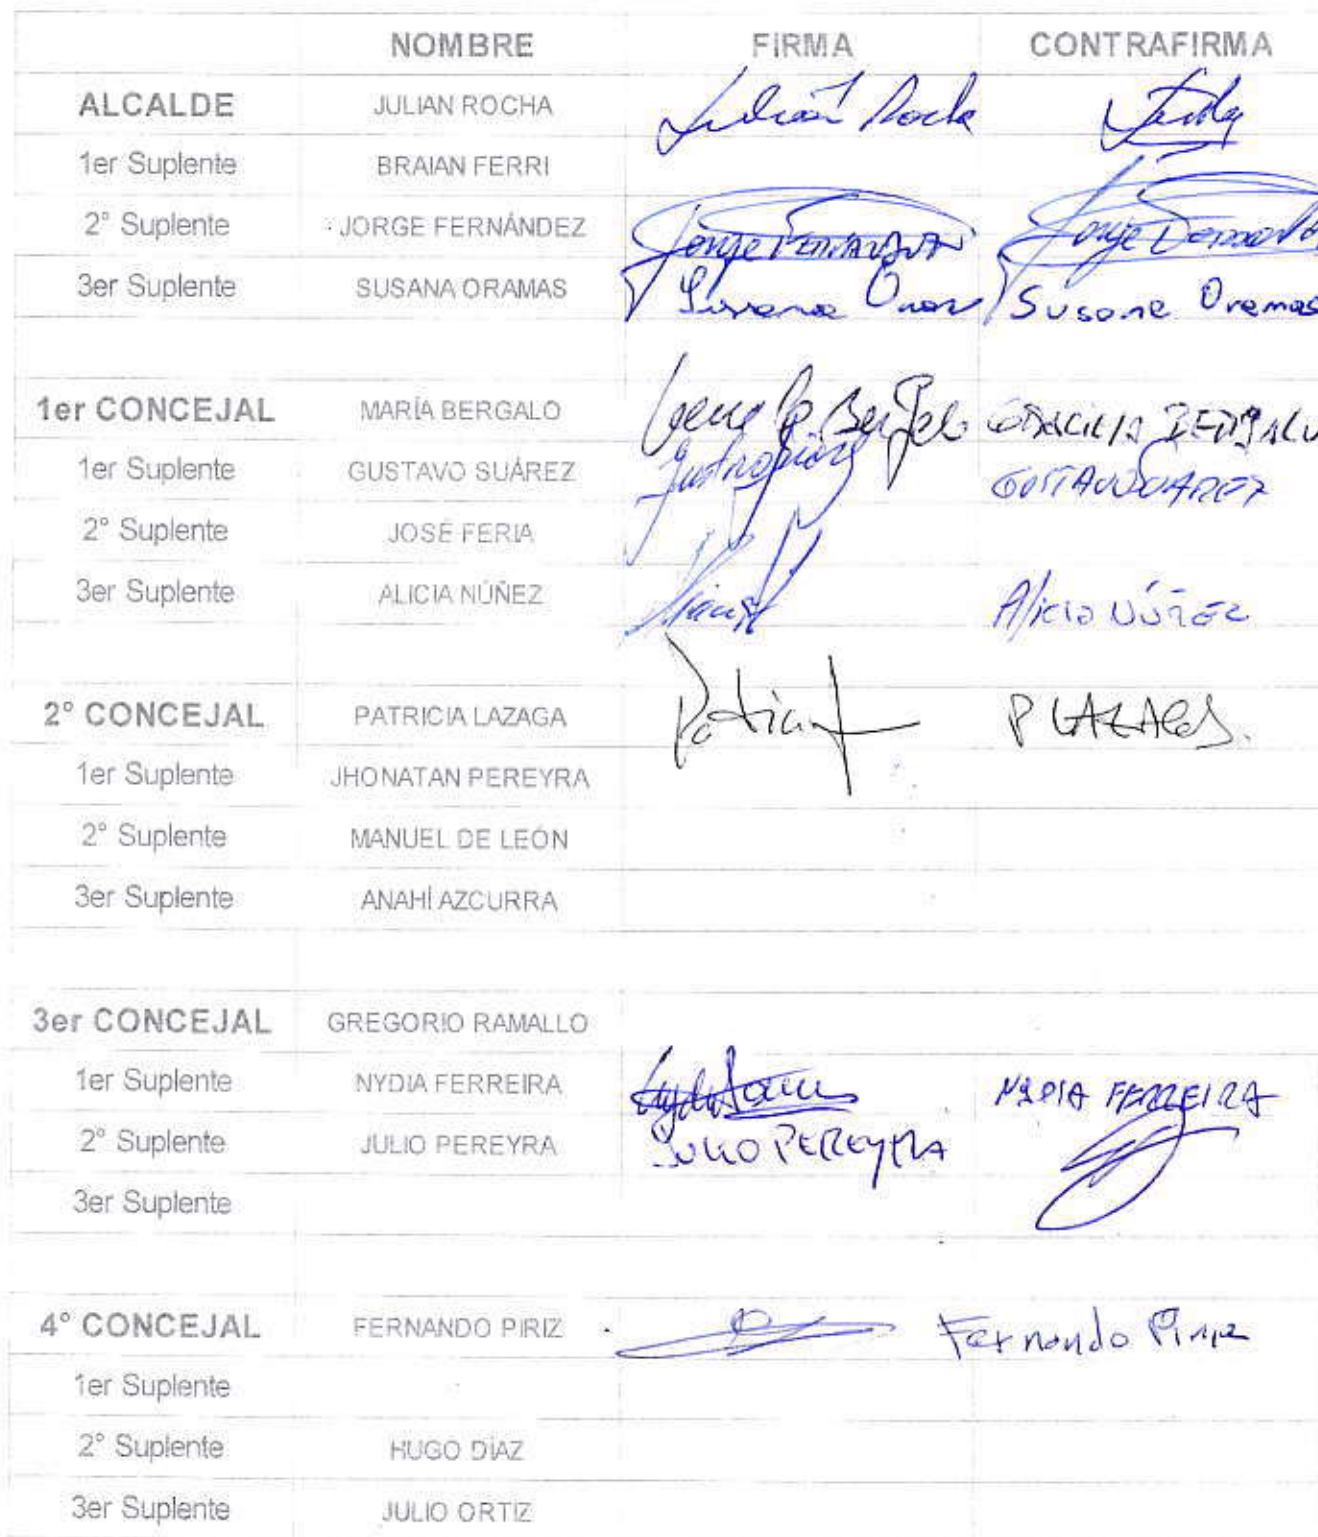 NOMBRE FIRMA CONTRAFIRMA
ALCALDE JULIAN ROCHA Julián Rocha
1er Suplente BRAIAN FERRI
2° Suplente JORGE FERNÁNDEZ Jorge Jorge
3er Suplente SUSANA ORAMAS Susana Susana Oramas
1er CONCEJAL MARÍA BERGALO
1er Suplente GUSTAVO SUÁREZ
2° Suplente JOSÉ FERIA
3er Suplente ALICIA NÚÑEZ Alicia NÚÑEZ
2° CONCEJAL PATRICIA LAZAGA P
1er Suplente JHONATAN PEREYRA
2° Suplente MANUEL DE LEÓN
3er Suplente ANAHÍ AZCURRA
3er CONCEJAL GREGORIO RAMALLO
1er Suplente NYDIA FERREIRA NYDIA FERREIRA
2° Suplente JULIO PEREYRA JULIO PEREYRA
3er Suplente
4° CONCEJAL FERNANDO PIRIZ Fernando Piriz
1er Suplente
2° Suplente HUGO DÍAZ
3er Suplente JULIO ORTIZ